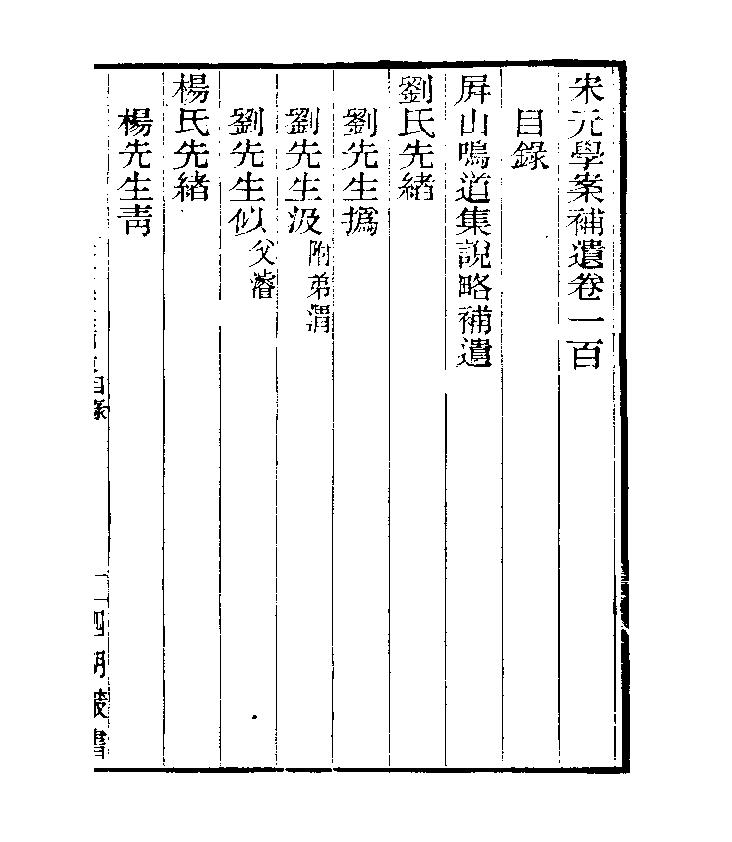 宋元學案補遺卷一百
目錄
屏山鳴道集說略補遺
劉氏先緒
劉先生撝
劉先生汲附弟渭
劉先生似父濬
楊氏先緒
楊先生青
四明叢書